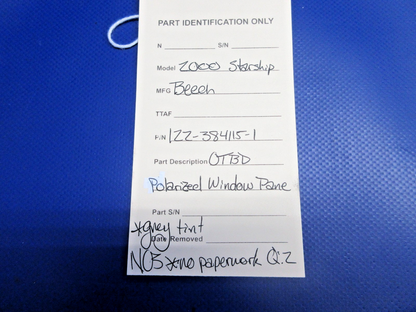 PART IDENTIFICATION ONLY
N S/N
Model 2000 Starship
MFG Beech
TTAF
P/N 122-384115-1
Part Description OTBD
Polarized Window Pane
Part S/N
*grey tint
Date Removed
*no paperwork Q.2